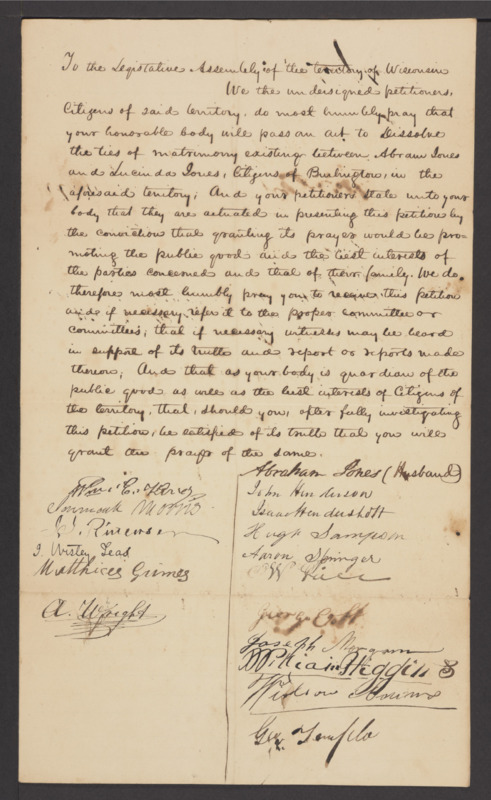 To the Legislative Assembly of the territory of Wisconsin
We the undersigned petitioners,
Citizens of said territory, do most humbly pray that
your honorable body will pass an act to Dissolve
the ties of matrimony existing between Abram Jones
and Lucinda Jones, Citizens of Burlington, in the
aforesaid territory; And your petitioners state unto your
body that they are actuated in presenting this petition by
the conviction that granting its prayer would be pro-
moting the public good and the best interests of
the parties concerned and that of their family. We do
therefore most humbly pray you to receive this petition
and if necessary refer it to the proper committee or
committees, that if necessary witnesses may be heard
in support of its truth and report or reports made
thereon; And that as your body is guardian of the
public good as well as the best interests of Citizens of
the territory, that, should you, after fully investigating
this petition, be satisfied of its truth that you will
grant the prayer of the same.
Abraham Jones (Husband)
John Henderson
Isaac Hendershott
Hugh Sampson
Aaron Springer
Joseph Morgan
William Higgins
Geo. Temple
J. Wistey Seas
Matthias Grimes
A. Wright